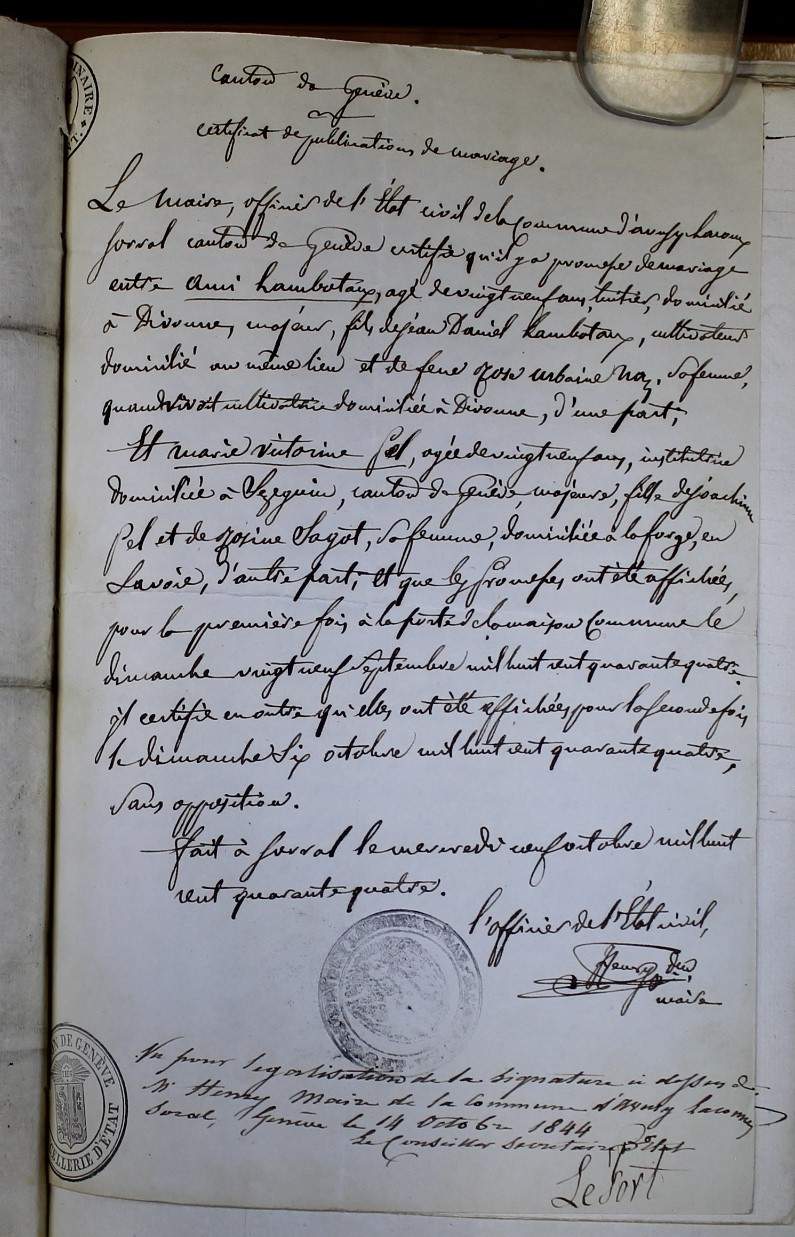 Canton de Genève.
certificat de publications de mariage.
Le Maire, officier de l'État civil de la Commune d'avusy Laconnex
Sorral canton de Genève certifie qu'il y a promesse de mariage
entre ami Lambotaux, agé de vingt neuf ans, luttier, domicilié
à Divonne, majeur, fils de jean Daniel Lambotaux, cultivateur
domicilié au même lieu et de feue Rose urbaine Noz, sa femme,
quand vivait cultivatrice domiciliée à Divonne, d'une part;
Et marie victorine Pel, agée de vingt neuf ans, institutrice
domiciliée à Sezegnin, canton de Genève, majeure, fille de joachim
Pel et de Rosine Sagot, sa femme, domiciliée à la forge, en
Savoie, d'autre part; Et que les promesses ont été affichées,
pour la première fois, à la porte de la maison Commune le
dimanche vingt neuf Septembre mil huit cent quarante quatre.
il certifie en outre qu'elles ont été affichées pour la seconde fois
le dimanche Six octobre mil huit cent quarante quatre,
sans opposition.
fait à Sorral le mercredi neuf octobre mil huit
cent quarante quatre.
l'officier de l'État civil,
Henry
maire
Vu pour légalisation de la signature ci dessus de
Mr Henry Maire de la Commune d'Avusy Laconnex
Soral, Genève le 14 Octobre 1844
Le Conseiller Secrétaire d'Etat
Le Fort
DE GENÈVE
D'ÉTAT